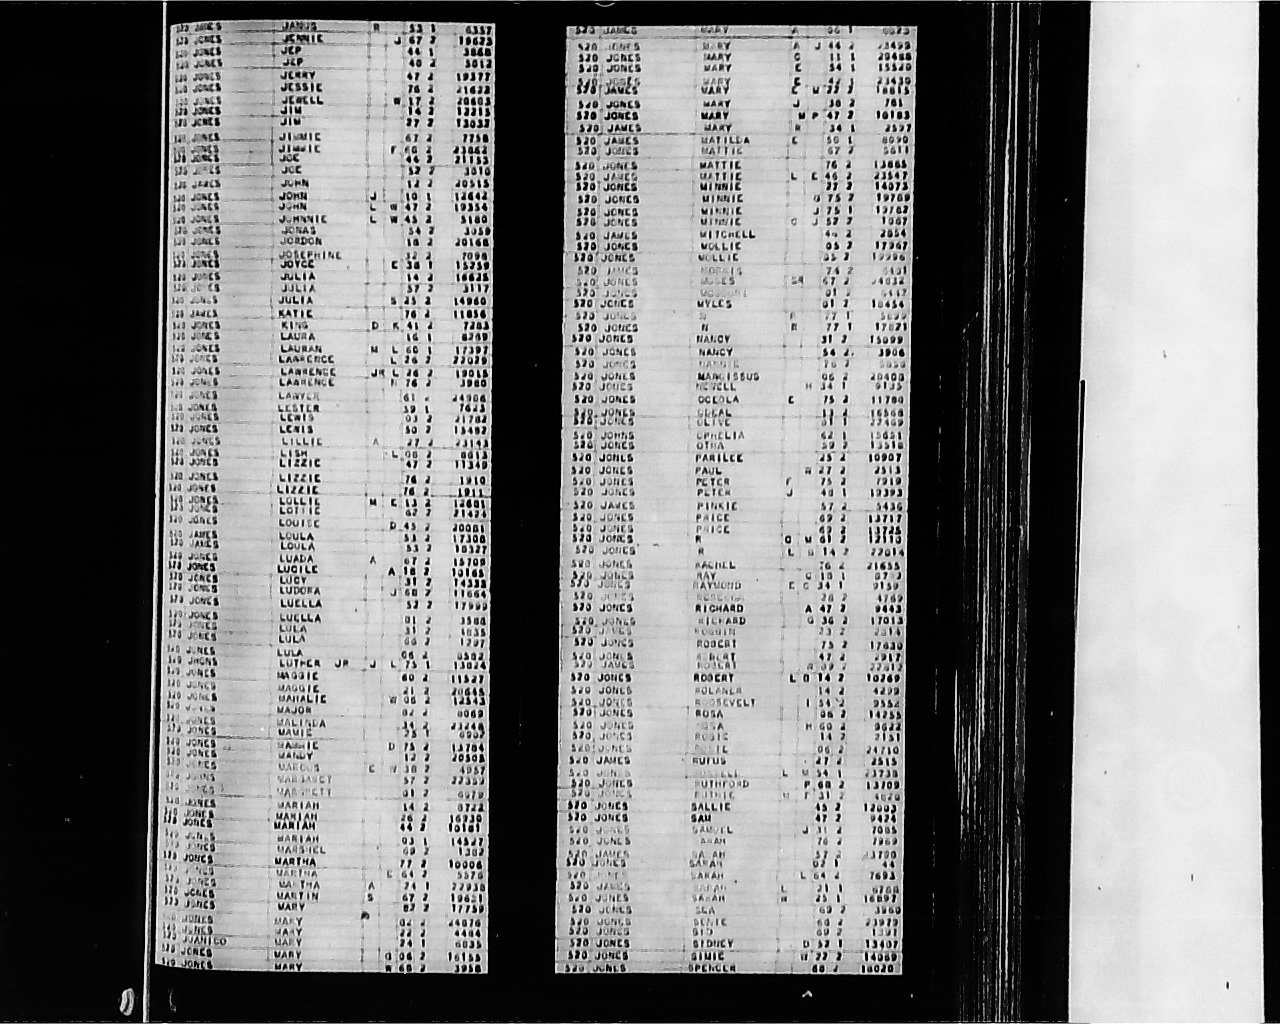 520 JAMES JANUS R 53 1 6357
520 JONES JENNIE J 67 2 19623
520 JONES JEP 44 1 3868
520 JONES JEP 40 2 3012
520 JONES JERRY 47 2 19377
520 JONES JESSIE 76 2 21622
520 JONES JEWELL W 17 2 20603
520 JONES JIM 14 2 12215
520 JONES JIM 27 2 13032
520 JONES JIMMIE 67 2 7758
520 JONES JIMMIE F 60 2 23862
520 JONES JOE 44 2 21153
520 JONES JOE 52 2 3010
520 JAMES JOHN 12 2 20515
520 JONES JOHN J 10 1 12642
520 JONES JOHN L W 47 2 19354
520 JONES JOHNNIE L W 45 2 5180
520 JONES JONAS 54 2 3059
520 JONES JORDON 18 2 20168
520 JONES JOSEPHINE 32 2 7098
520 JONES JOYCE E 38 1 15259
520 JONES JULIA 14 2 16625
520 JONES JULIA 57 2 3117
520 JONES JULIA S 25 2 14960
520 JAMES KATIE 76 2 11856
520 JONES KING D K 41 2 7283
520 JONES LAURA 16 1 8269
520 JONES LAURAN M L 60 1 17397
520 JONES LAWRENCE L 26 2 22029
520 JONES LAWRENCE JR L 26 2 19015
520 JONES LAWRENCE N 76 2 3980
520 JONES LAWYER 61 2 24906
520 JONES LESTER 59 1 7625
520 JONES LEWIS 03 2 21782
520 JONES LEWIS 50 2 15492
520 JONES LILLIE A 27 2 23143
520 JONES LISH L 08 2 8613
520 JONES LIZZIE 47 2 11349
520 JONES LIZZIE 76 2 1910
520 JONES LIZZIE 76 2 1911
520 JONES LOLLIE M E 13 2 12601
520 JONES LOTTIE 62 2 21424
520 JONES LOUISE D 45 2 20081
520 JAMES LOULA 53 2 17308
520 JAMES LOULA 53 2 10327
520 JONES LUADA A 67 2 15709
520 JONES LUCILE A 18 2 10165
520 JONES LUCY 31 2 14338
520 JONES LUDORA J 60 2 11664
520 JONES LUELLA 52 2 17999
520 JONES LUELLA 01 2 3588
520 JONES LULA 31 2 1035
520 JONES LULA 66 2 1297
520 JONES LULA 06 2 5502
520 JHONS LUTHER JR J L 75 1 13024
520 JONES MAGGIE 60 2 11527
520 JONES MAGGIE 21 2 20645
520 JONES MAHALIE W 06 2 12543
520 JONES MAJOR 02 2 8069
520 JONES MALINDA 34 2 23248
520 JONES MAMIE 25 1 6907
520 JONES MAMMIE D 75 2 13784
520 JONES MANDY 12 2 20505
520 JONES MARCUS E W 38 2 4957
520 JOHNS MARGARET 57 2 22359
520 JONES MARGRETT 01 2 6979
520 JONES MARIAH 14 2 8722
520 JONES MARIAH 26 2 16730
520 JONES MARIAH 44 2 10181
520 JONES MARIAH 03 1 14527
520 JONES MARSHEL 69 2 1382
520 JONES MARTHA 77 2 10006
520 JONES MARTHA E 64 2 5576
520 JONES MARTHA A 24 1 22938
520 JONES MARTIN S 67 2 19621
520 JONES MARY 02 2 17759
520 JONES MARY 02 2 24876
520 JONES MARY 21 2 4464
520 JUANICO MARY 24 1 6035
520 JONES MARY G 06 2 16155
520 JONES MARY W 68 2 3958
520 JAMES MARY A 06 1 6823
520 JONES MARY A J 44 2 23499
520 JONES MARY C 11 1 20488
520 JONES MARY E 54 1 15520
520 JONES MARY E 42 1 23430
520 JAMES MARY E M 22 2 16815
520 JONES MARY J 38 2 761
520 JONES MARY M P 47 2 10183
520 JAMES MARY R 34 1 2597
520 JAMES MATILDA E 50 1 8090
520 JONES MATTIE 67 2 5611
520 JONES MATTIE 76 2 13865
520 JAMES MATTIE L E 46 2 23547
520 JONES MINNIE 27 2 14073
520 JONES MINNIE G 75 2 19789
520 JONES MINNIE J 75 1 13782
520 JONES MINNIE C J 52 2 1067
520 JAMES MITCHELL 44 2 2854
520 JONES MOLLIE 05 2 17967
520 JONES MOLLIE 05 2 19996
520 JAMES MORRIS 74 2
520 JONES MOSES SR 67 2 24032
520 JONES MOSSURI 01 2
520 JONES MYLES 01 2 10454
520 JONES N R 77 1
520 JONES N R 77 1 17821
520 JONES NANCY 31 2 15099
520 JONES NANCY 54 2 3906
520 JONES NANNIE 76 2
520 JONES NARCISSUS 06 2 20409
520 JONES NEWELL H 34 1 9135
520 JONES OCEOLA E 75 2 11780
520 JONES ODEAL 13 2 16568
520 JONES OLIVE 01 1 22409
520 JOHNS OPHELIA 62 1 15651
520 JONES OTHA 59 2 13516
520 JONES PARILEE 25 2 10907
520 JONES PAUL W 27 2 2513
520 JONES PETER F 75 2 7919
520 JONES PETER J 40 1 19393
520 JAMES PINKIE 57 2 5436
520 JONES PRICE 69 2 13717
520 JONES PRICE 69 2 13728
520 JONES R G M 61 2 12110
520 JONES R L B 14 2 22014
520 JONES RACHEL 76 2 21655
520 JONES RAY C 10 1
520 JONES RAYMOND E C 34 1 9159
520 JONES REBECCA 26 2 4769
520 JONES RICHARD A 47 2 9443
520 JONES RICHARD G 36 2 17013
520 JAMES ROBBIN 23 2 2314
520 JONES ROBERT 75 2 17630
520 JONES ROBERT 47 2 2917
520 JAMES ROBERT W 09 2 22512
520 JONES ROBERT L D 14 2 10269
520 JONES ROLANER 14 2 4299
520 JONES ROOSEVELT I 54 2 9552
520 JONES ROSA 06 2 14255
520 JONES ROSA H 60 2 9622
520 JONES ROSIE 14 2 2151
520 JONES ROSIE 06 2 24710
520 JAMES RUFUS 27 2 2515
520 JONES RUSSELL L M 54 1 23738
520 JONES RUTHFORD P 68 2 13709
520 JONES RUTHIE M F 31 2 4620
520 JONES SALLIE 45 2 12003
520 JONES SAM 47 2 9424
520 JAMES SAMUEL J 31 2 7085
520 JONES SARAH 76 2 7969
520 JAMES SARAH 57 2 23790
520 JONES SARAH 02 1 44
520 JONES SARAH L 64 2 7693
520 JAMES SARAH L 21 1 6788
520 JONES SARAH W 25 1 16897
520 JONES SEA 69 2 3960
520 JONES SENIE 68 2 23979
520 JONES SID 69 2 1391
520 JONES SIDNEY D 52 1 13407
520 JONES SIMIE W 22 2 14069
520 JONES SPENCER 68 2 16020